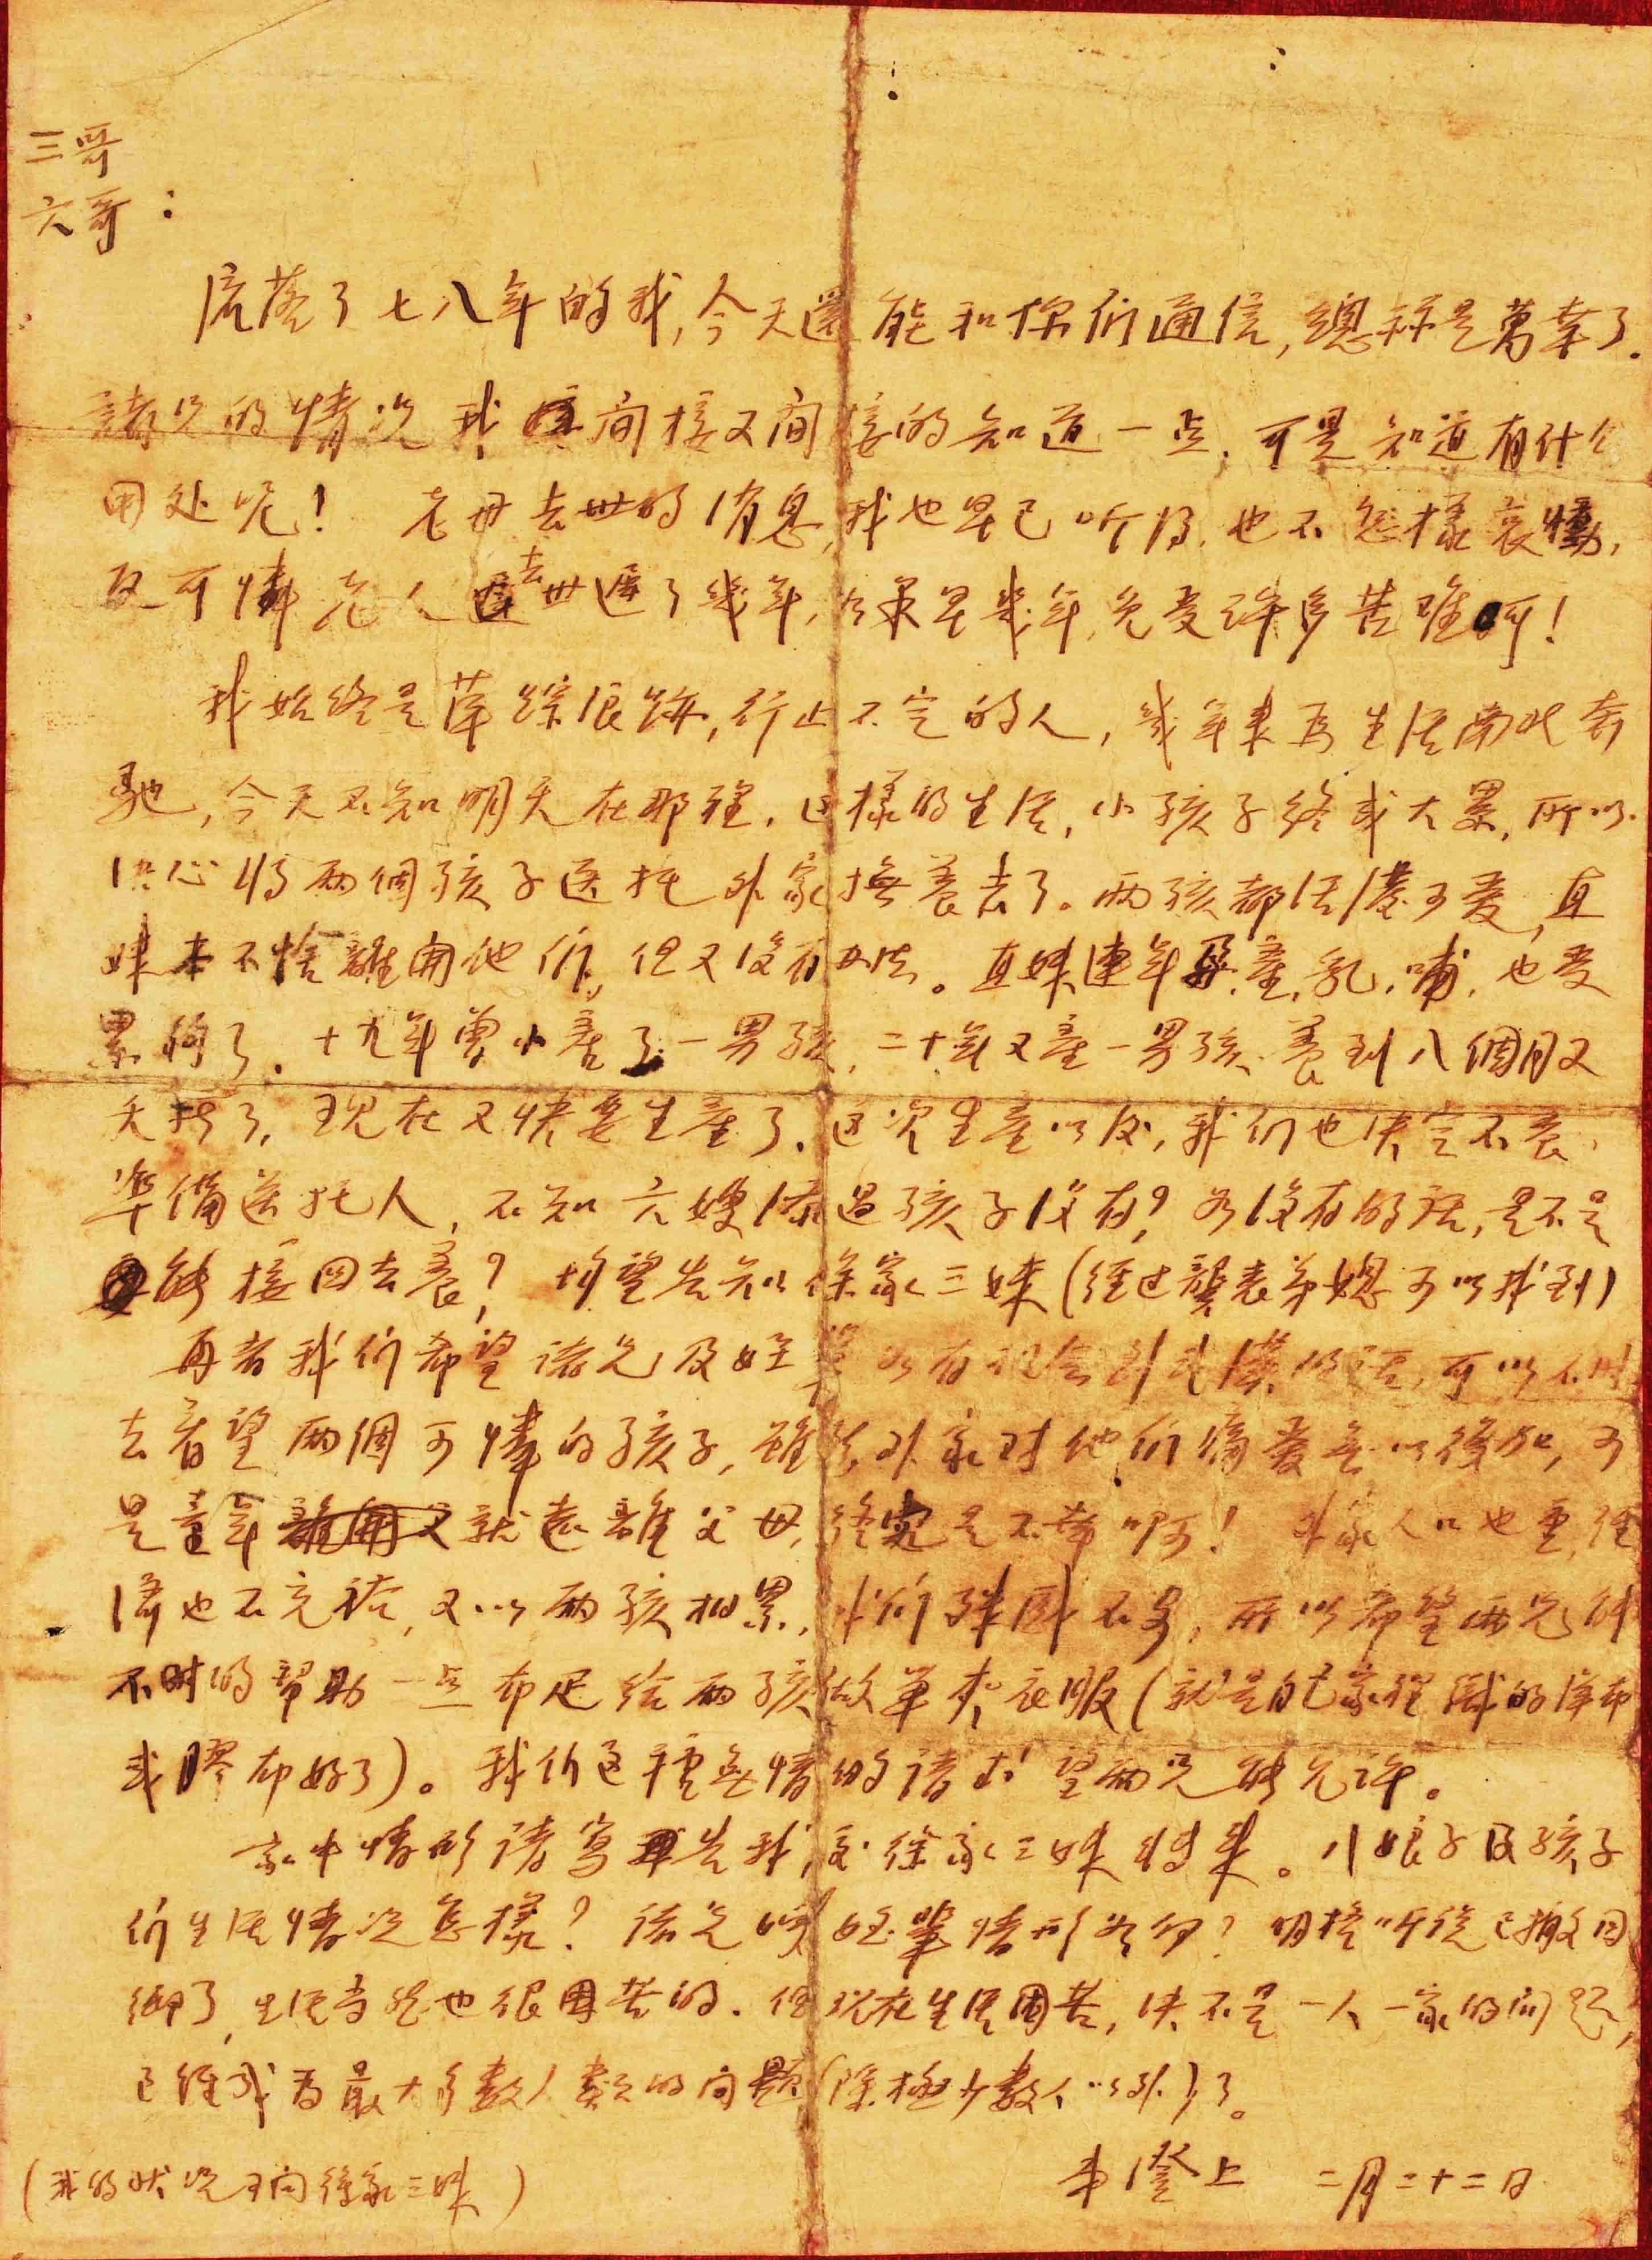 三哥
六哥：
流落了七八年的我，今天還能和你們通信，總称是萬幸了.
諸兄的情况我間接又間接的知道一点，可是知道有什么
用处呢！ 老母去世的消息，我也早已听得，也不怎樣哀慟，
反可憐老人去世遲了幾年，如果早幾年，免受许多苦难呵！
我始终是萍踪浪跡，行止不定的人，幾年来为生活南北奔
馳，今天不知明天在那裡，这樣的生活，小孩子终成大累，所以
决心将两個孩子送托外家撫養去了。两孩都活潑可爱，直
妹本不捨離開他们，但又没有办法。直妹連年孕，產，乳，哺，也受
累夠了. 十九年曾小產了一男孩，二十年又產一男孩，養到八個月又
夭折了，现在又快要生產了，这次生產以後，我们也决定不養，
準備送托人，不知六嫂添过孩子没有？如没有的話，是不是
能接回去養？均望告知徐家三妹（经过龔表弟媳可以找到）
再者我们希望诸兄及姪輩如有机会到武漢的话，可以不时
去看望两個可憐的孩子，雖然外家对他们痛爱無以復加，可
是童年就远離父母，终究是不幸啊！ 外家人口也重，经
濟也不充裕，又以两孩相累，我们殊感不安，所以希望两兄能
不时的帮助一点布疋给两孩做单夹衣服（就是自己家裡織的洋布
或膠布好了）。我们这種無情的请求望两兄能允许。
家中情形请写告我，交徐家三妹转来。八娘子及孩子
们生活情况怎様？诸兄嫂姪輩情形如何？明格听说已搬回
鄉了，生活当然也很困苦的. 但现在生活困苦，决不是一人一家的问题，
已经成为最大多数人類的问题（除極少数人以外）了。
弟澄上 二月二十二日
（我的状况可问徐家三妹）